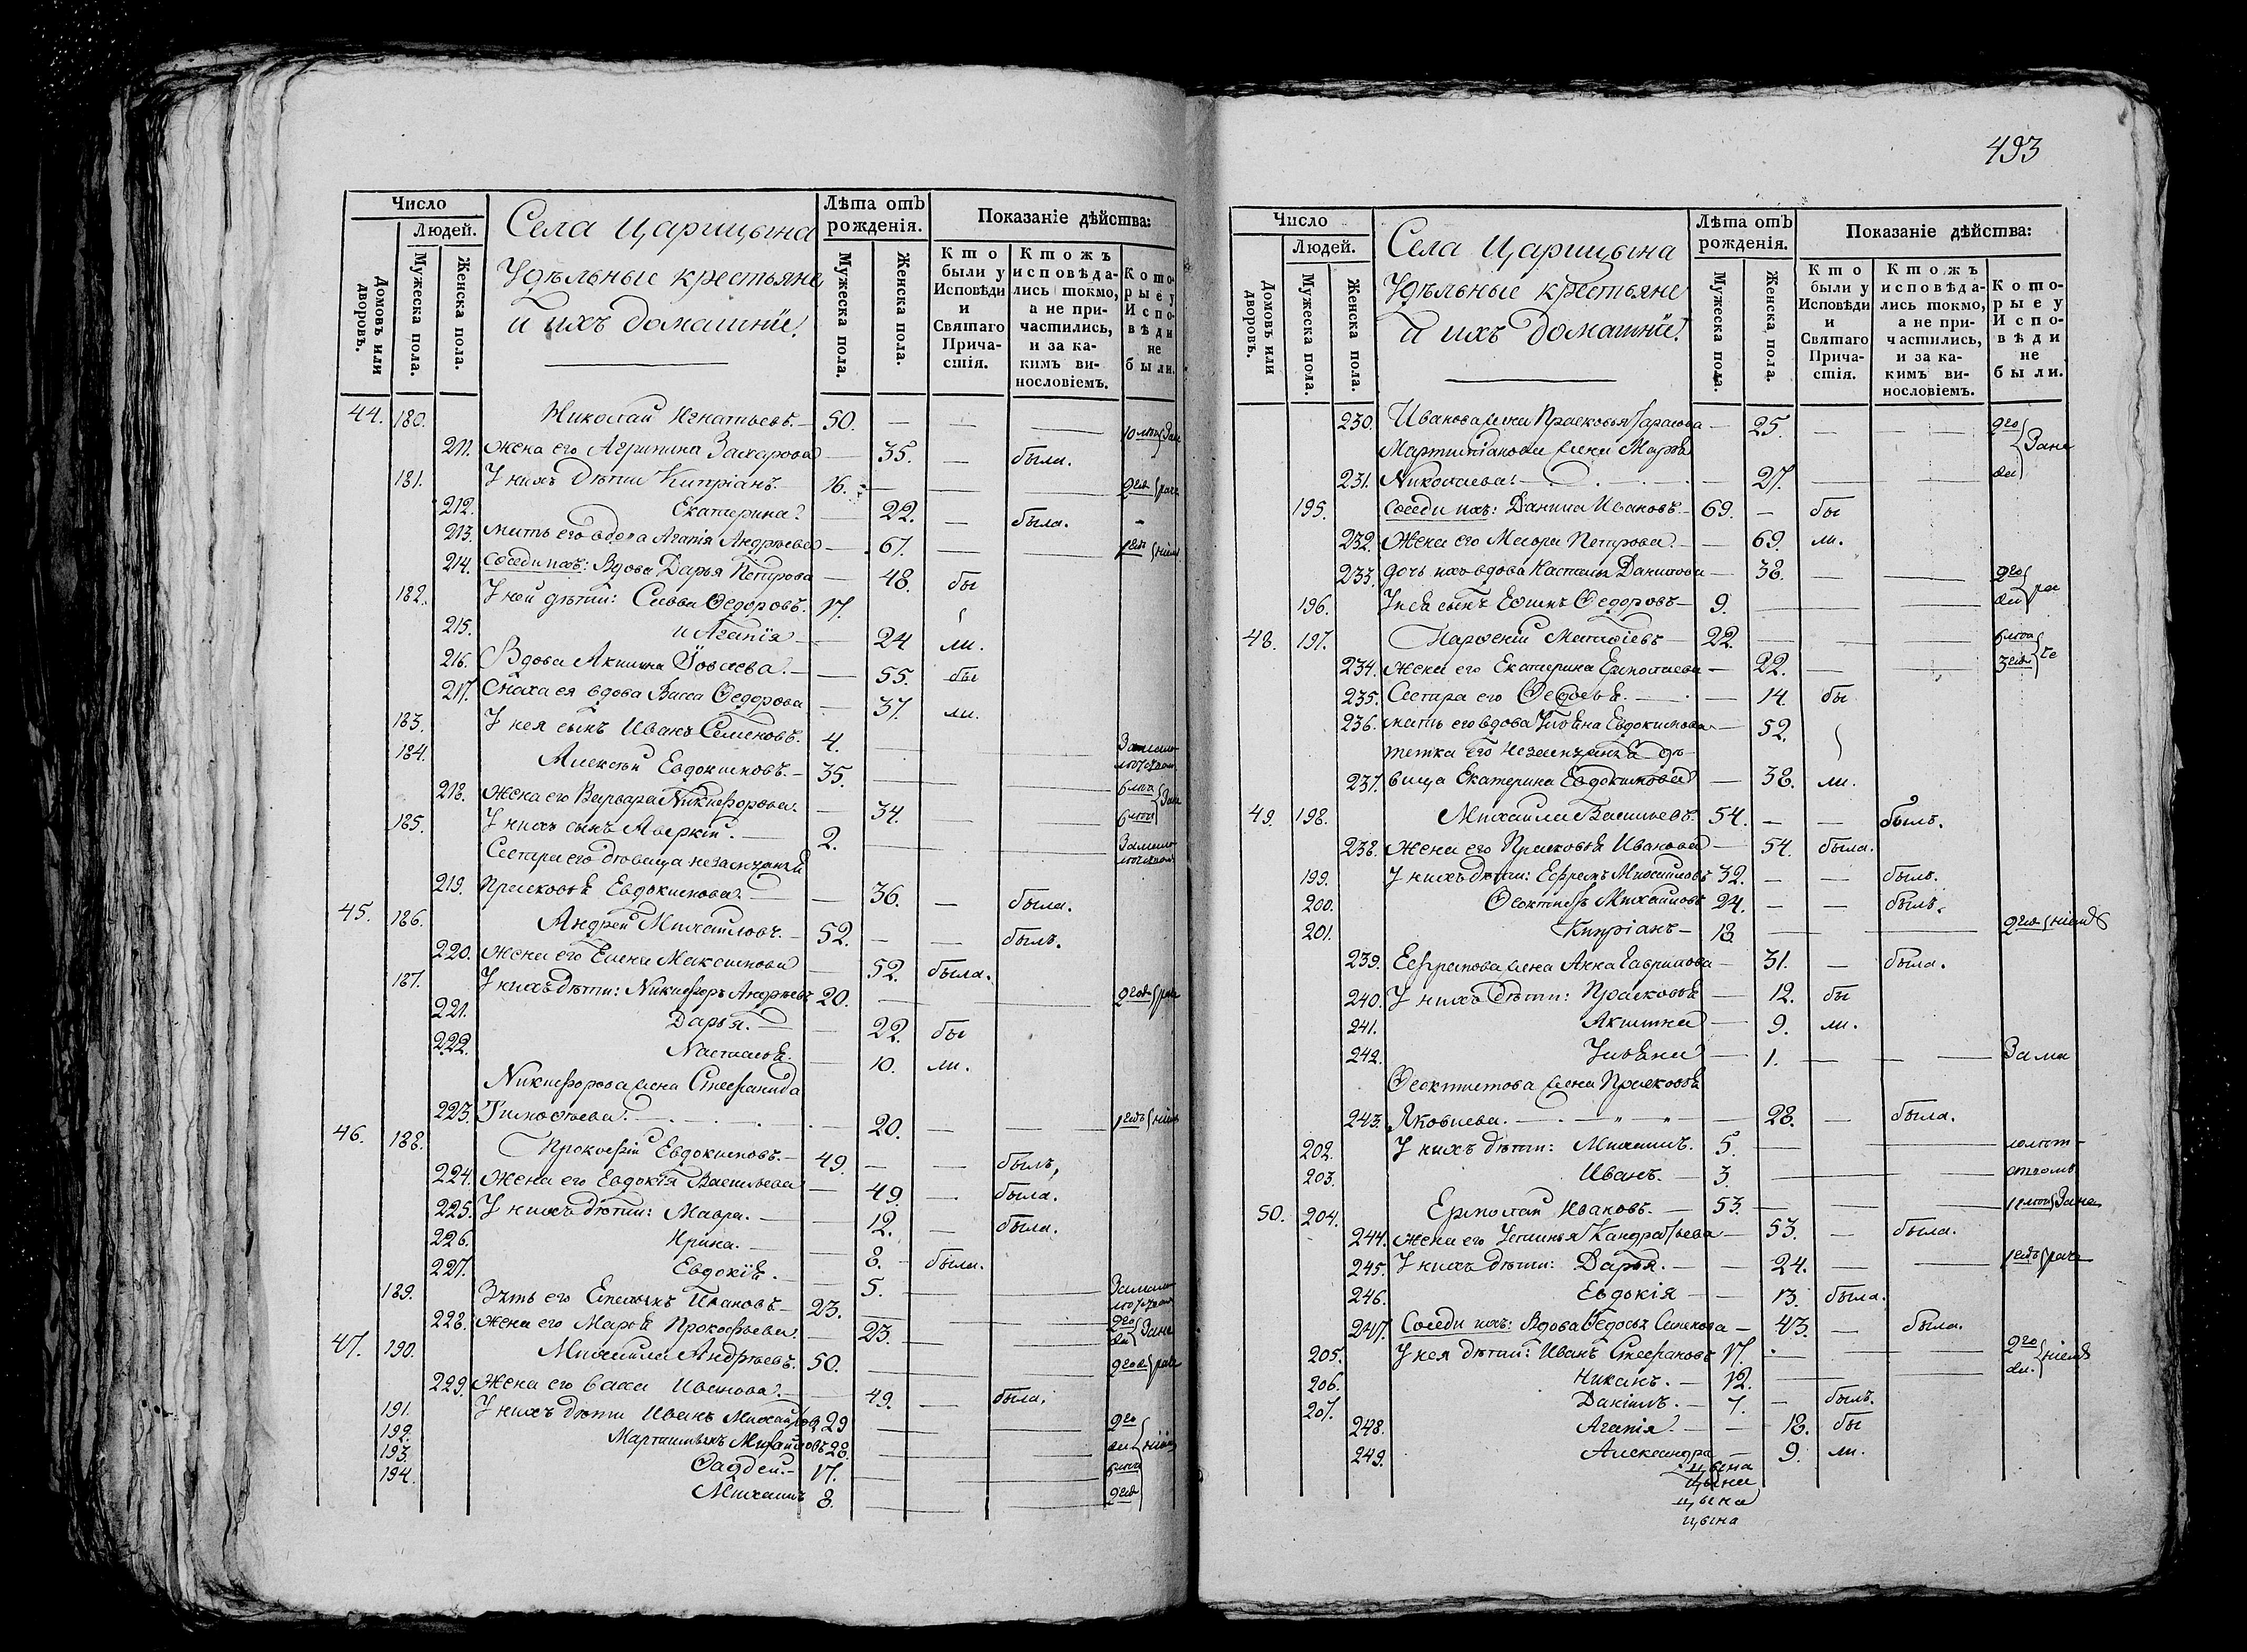 Число
Людей.
Домовъ или дворовъ.
Мужеска пола.
Женска пола.
Села Царицына
Удѣльные крестьяне
и ихъ домашніе.
Лѣта отъ рожденія.
Мужеска пола.
Женска пола.
Показаніе дѣйства:
Кто были у Исповѣди и Святаго Причастія.
Ктожъ исповѣдались токмо, а не причастились, и за какимъ винословіемъ.
Которые у Исповѣди не были.
44. 180. Николай Игнатьевъ. 50.
211. жена его Агрипина Захарова 35. была.
181. У нихъ дѣти Кипріанъ. 16.
212. Екатерина. 22. была.
213. мать его вдова Агапія Андрѣева 67.
214. Соседи ихъ: Вдова Дарья Петрова 48. бы
182. У ней дѣти: Савва Ѳедоровъ. 17.
215. и Агапія 24 ли.
216. Вдова Акилина Іовлева. 55. бы
217. Сноха ея вдова Васса Ѳедорова 37. ли.
183. У нея сынъ Иванъ Семеновъ. 4.
184. Алексѣй Евдокимовъ. 35.
218. жена его Варвара Никифорова. 34.
185. У нихъ сынъ Аверкій. 2.
Сестра его дѣвица незамужняя
219. Прасковья Евдокимова. 36. была.
45. 186. Андрей Михайловъ. 52. былъ.
220. жена его Елена Максимова 52. была.
187. У нихъ дѣти: Никифоръ Андрѣевъ 20.
221. Дарья. 22. бы
222. Настасья. 10. ли.
Никифорова жена Стефанида
223. Тимофѣева. 20.
46. 188. Прокофій Евдокимовъ. 49. былъ.
224. Жена его Евдокія Васильева 49. была.
225. У нихъ дѣти: Мавра. 12. была.
226. Ирина. 8. была.
227. Евдокія. 5.
189. Зять его Ивановъ 23.
228. жена его Марья Прокофьева. 23.
47. 190. Михаила Андрѣевъ. 50.
229. Жена его Васса Иванова. 49. была.
191. У нихъ дѣти Иванъ Михайловъ 29
192. Мартиніянъ Михайловъ 28.
193. Ѳаддей. 17.
194. Михаилъ 8.
493
Число
Людей.
Домовъ или дворовъ.
Мужеска пола.
Женска пола.
Села Царицына
Удѣльные крестьяне
и ихъ домашніе.
Лѣта отъ рожденія.
Мужеска пола.
Женска пола.
Показаніе дѣйства:
Кто были у Исповѣди и Святаго Причастія.
Ктожъ исповѣдались токмо, а не причастились, и за какимъ винословіемъ.
Которые у Исповѣди не были.
230. Иванова жена Прасковья Тарасова 25.
Мартиніанова жена Марѳа
231. Николаева. 27.
195. Соседи ихъ: Данила Ивановъ. 69. бы
232. Жена его Мавра Петрова. 69. ли.
233. дочь ихъ вдова Настасья Данилова 38.
196. У нея сынъ Ефимъ Ѳедоровъ 9.
48. 197. Парфеній Матвѣевъ 22.
234. жена его Екатерина Ермолаева 22.
235. Сестра его Ѳедосья. 14. бы
236. мать его вдова Ульяна Евдокимова 52.
тетка его незамужняя дѣ-
237. вица Екатерина Евдокимова 38. ли.
49. 198. Михаила Васильевъ. 54. былъ.
238. жена его Прасковья Иванова 54. была.
199. У нихъ дѣти: Ефремъ Михайловъ 32. былъ.
200. Ѳеоктистъ Михайловъ 24. былъ.
201. Кипріанъ 18.
239. Ефремова жена Анна Гаврилова 31. была.
240. У нихъ дѣти: Прасковья 12. бы
241. Акилина 9. ли.
242. Ульяна 1. За ма
Ѳеоктистова жена Прасковья
243. Яковлева. 28. была.
202. У нихъ дѣти: Михаилъ. 5.
203. Иванъ. 3.
50. 204. Ермолай Ивановъ. 53.
244. жена его Устинья Кандратьева 53. была.
245. У нихъ дѣти: Дарья. 24.
246. Евдокія 13. была.
247. Соседи ихъ: Вдова Ѳедосья Семенова 43. была.
205. У нея дѣти: Иванъ Стефановъ 17.
206. Никанъ. 12.
207. Даніилъ. 7. былъ.
248. Агапія. 18. бы
249. Александра 9. ли.
цына
цына
цына
цына